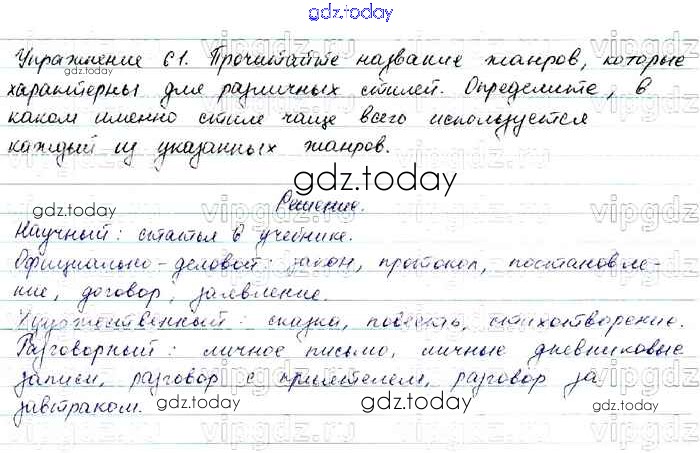 gdz.today
Упражнение 61. Прочитайте название жанров, которые
характерны для различных стилей. Определите, в
каком именно стиле чаще всего используется
каждый из указанных жанров.
Решение.
Научный: статья в учебнике.
Официально-деловой: закон, протокол, постановле-
ние, договор, заявление.
Художественный: сказка, повесть, стихотворение.
Разговорный: личное письмо, личные дневниковые
записи, разговор с приятелем, разговор за
завтраком.